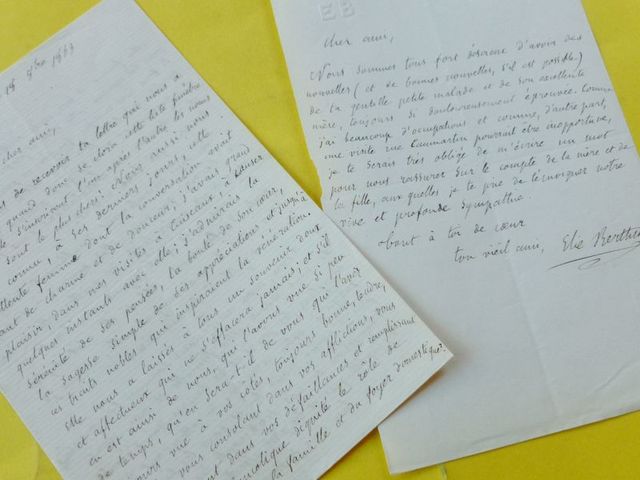 cher ami,
de recevoir ta lettre qui nous a
quand donc se clora cette liste funèbre
s'inscrivent l'un après l'autre les noms
sont le plus chers! Nous aussi nous
connu, à ses derniers jours, cette
llente femme dont la conversation avait
ant de charme et de douceur; j'avais grand
plaisir, dans mes visites à Cuiseaux, à causer
quelques instants avec elle; j'admirais la
sérénité de ses pensées, la bonté de son cœur,
la sagesse simple de ses appréciations et jusqu'à
ces traits nobles qui inspiraient la vénération.
Elle nous a laissé à tous un souvenir doux
et affectueux qui ne s'effacera jamais; et s'il
en est ainsi de nous, qui l'avons vue si peu
de temps, qu'en sera-t-il de vous qui l'avez
jours vue à vos côtés, toujours bonne, tendre,
vous consolant dans vos afflictions, vous
dans vos défaillances et remplissant
dignité le rôle de
la famille et du foyer domestique?
EB
Cher ami,
Nous sommes tous fort désireux d'avoir des
nouvelles (et de bonnes nouvelles, s'il est possible)
de ta gentille petite malade et de son excellente
mère, toujours si douloureusement éprouvée. Comme
j'ai beaucoup d'occupations et comme, d'autre part,
une visite rue Caumartin pourrait être inopportune,
je te serais très obligé de m'écrire un mot
pour nous rassurer sur le compte de la mère et de
la fille, auxquelles je te prie de témoigner notre
vive et profonde sympathie.
à toi de cœur
ton vieil ami, Elie Berthet